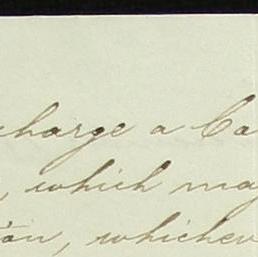 charge a Ca
, which may
ion, whichev